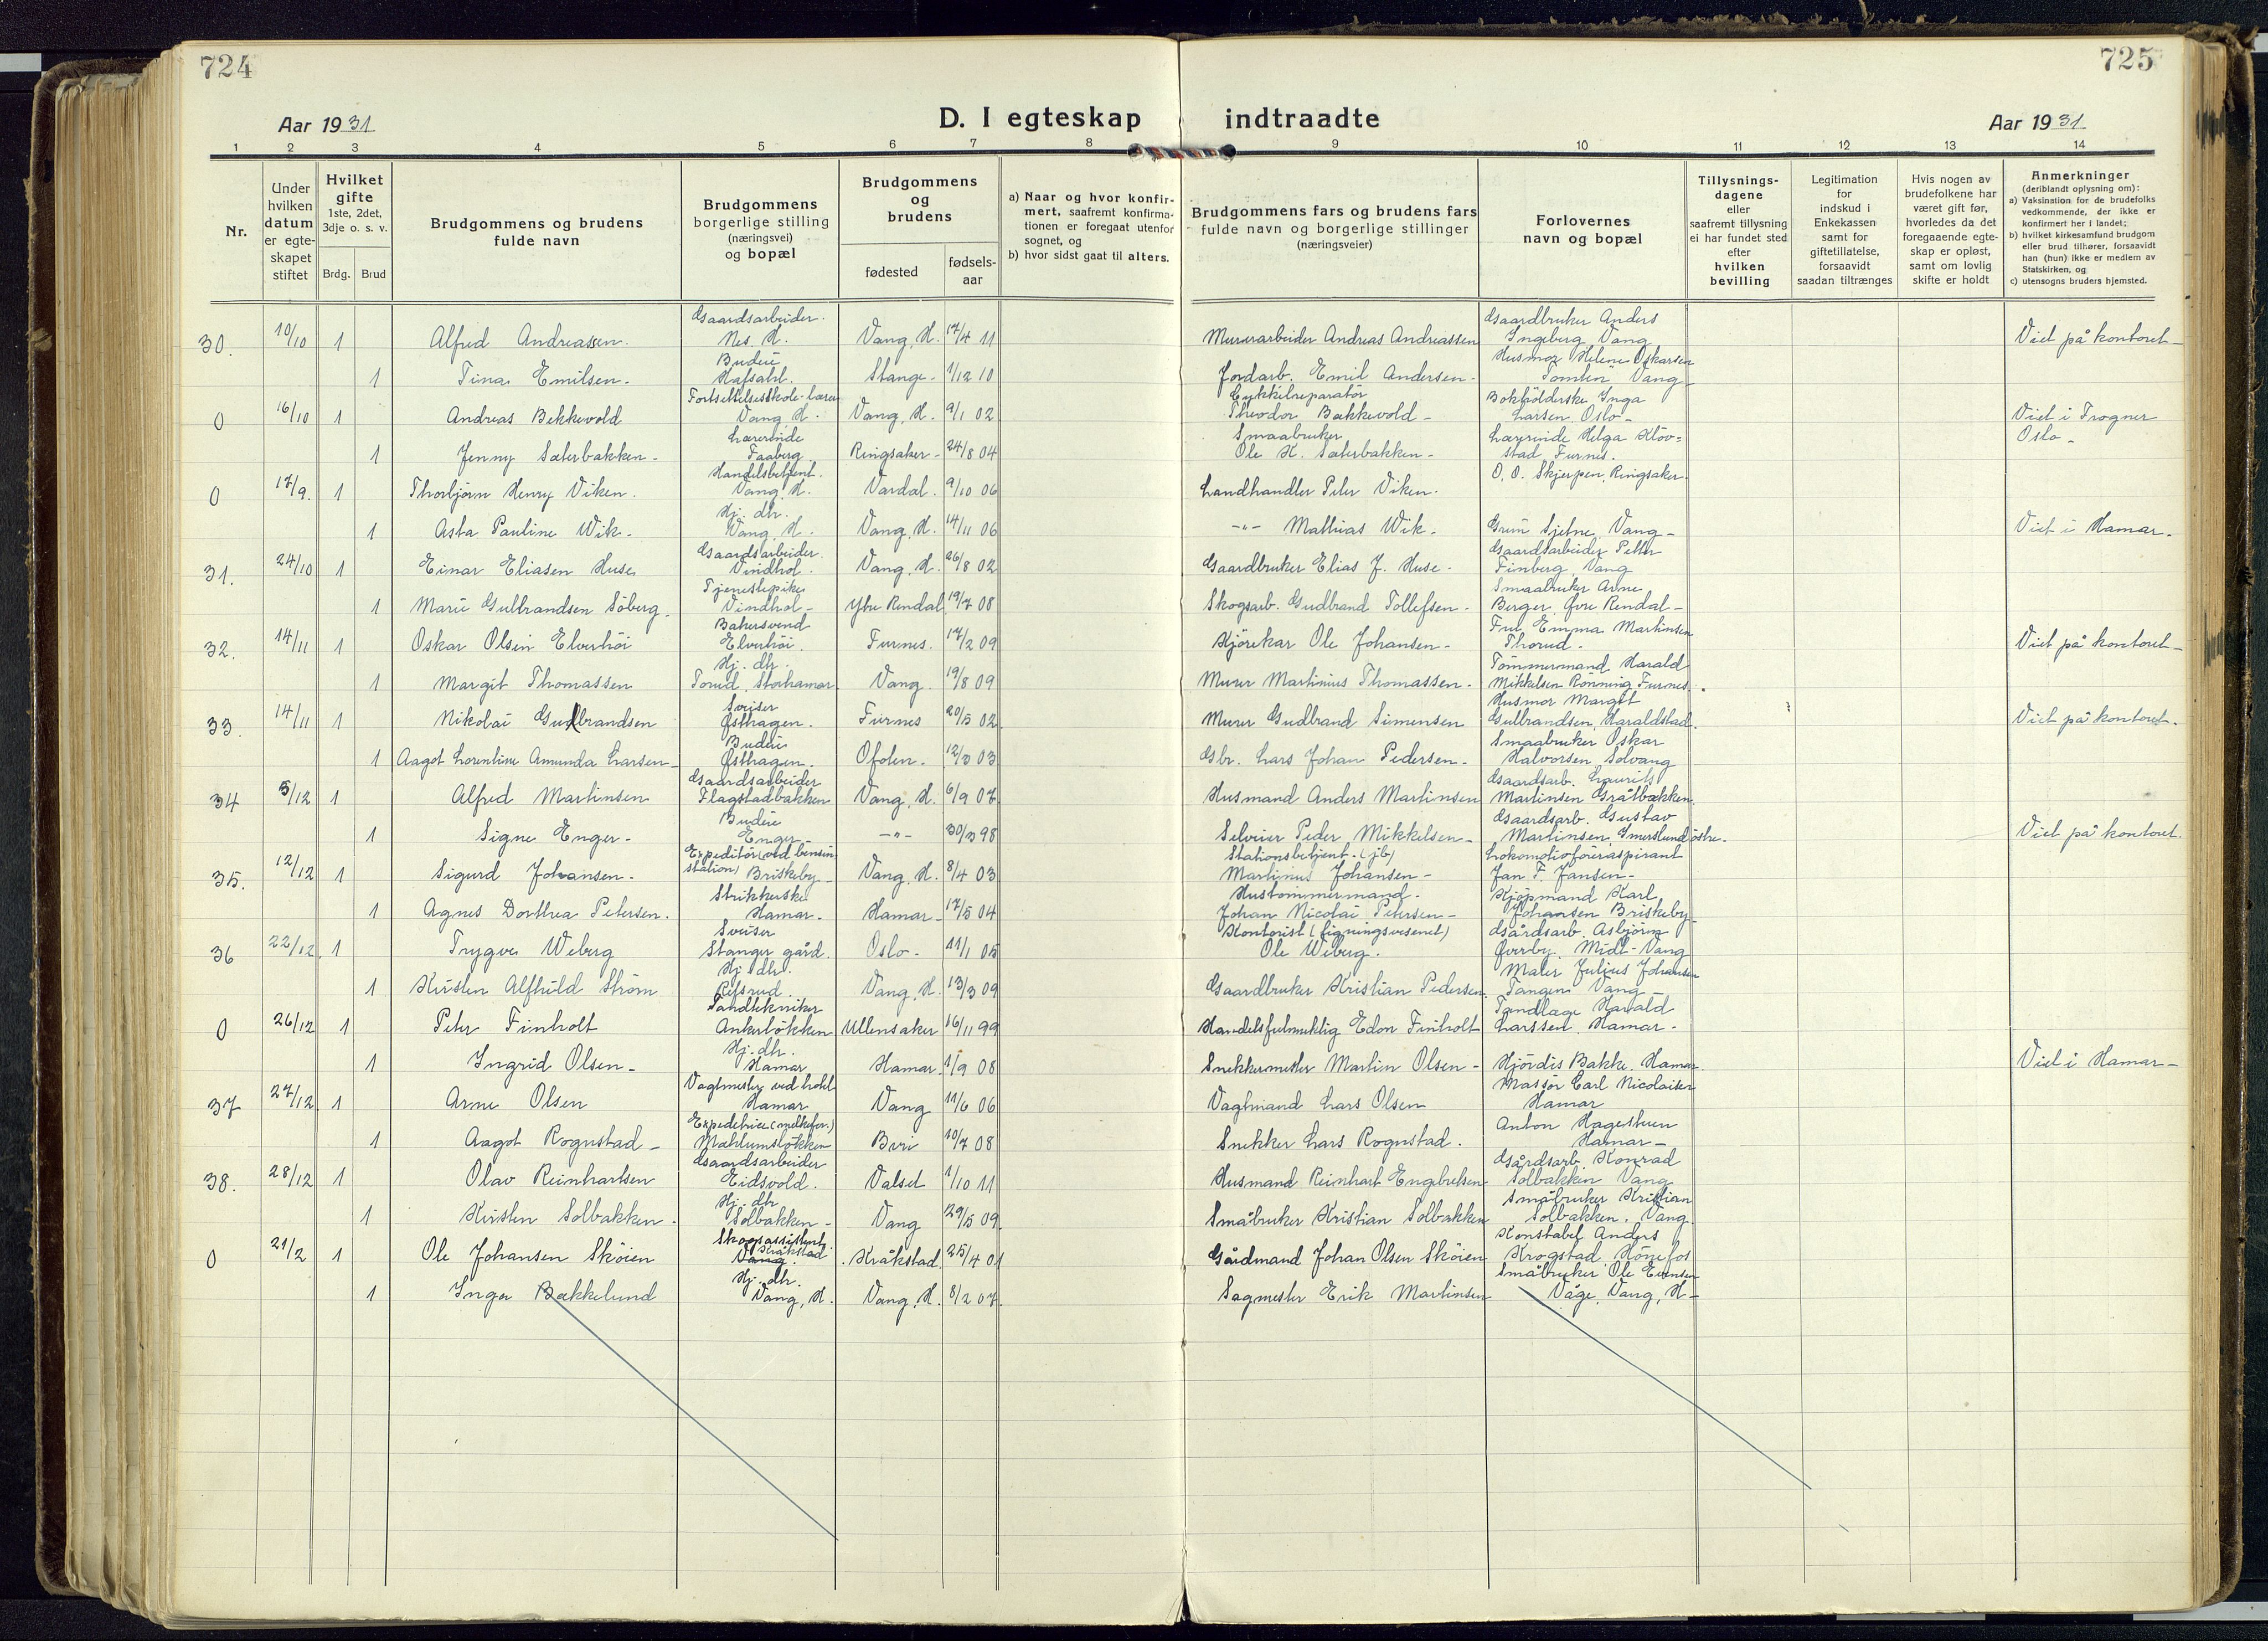 724
725
Aar 1931
D. I egteskap indtraadte
Aar 1931
1 2 3 4 5 6 7 8 9 10 11 12 13 14
Nr.
Under hvilken datum er egteskapet stiftet
Hvilket gifte 1ste, 2det, 3dje o. s. v.
Brdg. Brud
Brudgommens og brudens fulde navn
Brudgommens borgerlige stilling (næringsvei) og bopæl
Brudgommens og brudens
fødested
fødsels-aar
a) Naar og hvor konfirmert, saafremt konfirmationen er foregaat utenfor sognet, og
b) hvor sidst gaat til alters.
Brudgommens fars og brudens fars fulde navn og borgerlige stillinger (næringsveier)
Forlovernes navn og bopæl
Tillysningsdagene eller saafremt tillysning ei har fundet sted efter hvilken bevilling
Legitimation for indskud i Enkekassen samt for giftetillatelse, forsaavidt saadan tiltrænges
Hvis nogen av brudefolkene har været gift før, hvorledes da det foregaaende egteskap er opløst, samt om lovlig skifte er holdt
Anmerkninger (deriblandt oplysning om):
a) Vaksination for de brudefolks vedkommende, der ikke er konfirmert her i landet;
b) hvilket kirkesamfund brudgom eller brud tilhører, forsaavidt han (hun) ikke er medlem av Statskirken, og
c) utensogns bruders hjemsted.
30. 10/10 1 Alfred Andreassen. Gaardsarbeider. Nes. H. Vang, H. 17/4 11 Murerarbeider Andreas Andreassen Gaardbruker Anders Ingeberg, Vang Viet på kontoret -
1 Tina Emilsen. Budeie Hafsahl. Stange. 1/12 10 Jordarb. Emil Andersen - Husmor Helene Oskarsen Tomten Vang
0 16/10 1 Andreas Bekkevold Fortsettelsesskole-lærer Vang H. Vang, H. 9/1 02 Cykkelreparatør Theodor Bækkevold - Bokholderske Inga Larsen, Oslo - Viet i Frogner Oslo -
1 Jenny Sæterbakken - Lærerinde Faaberg Ringsaker - 24/8 04 Smaabruker Ole H. Sæterbakken - Lærerinde Helga Kløvstad Furnes.
0 17/9. 1 Thorbjørn Henry Viken. Handelsbetjent. Vang, H. Vardal. 9/10 06 Landhandler Peter Viken. O. O. Skjerpen, Ringsaker
1 Asta Pauline Wik. Hj. dtr. Vang, H. Vang, H. 14/11 06 -"- Mathias Wik. Sjetne, Vang - Viet i Hamar.
31. 24/10 1 Einar Eliasen Huse Gaardsarbeider. Vindhol. Vang, H. 26/8 02 Gaardbruker Elias J. Huse. Gaardsarbeider Petter Finberg, Vang
1 Marie Gulbrandsen Söberg. Tjenestepike Vindhol - Ytre Rendal 19/7 08 Skogsarb. Gudbrand Tollefsen. Smaabruker Arne Berger, Øvre Rendal -
32. 14/11 1 Oskar Olsen Elverhöi Bakersvend Elverhöi. Furnes. 17/2 09 Kjörekar Ole Johansen - Fru Emma Martinsen Thorud. Viet på kontoret -
1 Margit Thomassen Hj. dtr. Torud, Storhamar Vang. 19/8 09 Murer Martinius Thomassen. Tömmermand Harald Mikkelsen Rönning, Furnes.
33. 14/11 1 Nikolai Gudbrandsen Sveiser Østhagen. Furnes 20/5 02 Murer Gudbrand Simensen Husmor Margit Gulbrandsen, Haraldstad. Viet på kontoret.
1 Aagot Lorentine Amunda Larsen Budeie Østhagen. Ofoten. 12/3 03 Gbr. Lars Johan Pedersen. Smaabruker Oskar Halvorsen, Solvang
34 5/12 1 Alfred Martinsen Gaardsarbeider Flagstadbakken Vang, H. 6/9 07 Husmand Anders Martinsen Gaardsarb. Laurits Martinsen Gråtbækken.
1 Signe Enger. Budeie Enger -"- 30/3 98 Selveier Peder Mikkelsen - Gaardsarb. Gustav Martinsen, Imerslund østre. Viet på kontoret.
35. 12/12 1 Sigurd Johansen. Expeditör (ved bensinstation) Briskeby Vang, H. 8/4 03 Stationsbetjent. (jb) Martinus Johansen - Lokomotivføreraspirant Jan F. Jansen -
1 Agnes Dorthea Petersen. Strikkerske Hamar. Hamar - 17/5 04 Hustömmermand. Johan Nicolai Petersen - Kjöpmand Karl Johansen Briskeby
36 22/12. 1 Trygve Weberg Sveiser Stanger gård. Oslo. 11/1 05 Kontorist (ligningsvesenet) Ole Weberg. Gårdsarb. Asbjörn Øverby. Midt-Vang
1 Kirsten Alfhild Ström Hj. dtr. Vang, H. 13/3 09 Gaardbruker Kristian Pedersen Maler Julius Johansen Tangen Vang
0 26/12 1 Peter Finholt Tandtekniker Ankerlökken Ullensaker 16/11 99 Handelsfulmektig Edon Finholt Tandlæge Harald Larssen, Hamar.
1 Ingrid Olsen - Hj. dtr. Hamar Hamar. 1/9 08 Snekkermester Martin Olsen - Hjördis Bakke, Hamar. Viet i Hamar -
37 27/12 1 Arne Olsen Vagtmester ved hotel Hamar Vang 11/6 06 Vagtmand Lars Olsen Massör Carl Nicolaisen Hamar
1 Aagot Rognstad - Expeditrice (melkefor.) Mæhlumsløkken Biri 10/7 08 Snekker Lars Rognstad. Anton Hagestuen Hamar -
38. 28/12 1 Olav Reinhartsen Gaardsarbeider Eidsvold. Valset 1/10 11 Husmand Reinhart Engebretsen Gårdsarb. Konrad Solbakken Vang
1 Kirsten Solbakken. Hj. dtr. Solbakken - Vang 29/5 09 Småbruker Kristian Solbakken Småbruker Kristian Solbakken, Vang.
0 21/2 1 Ole Johansen Sköien Skogassistent Kråkstad Vang. Kråkstad. 25/4 01 Gårdmand Johan Olsen Sköien Konstabel Anders Krogstad, Hönefos
1 Inga Bækkelund Hj. dtr. Vang, H. Vang, H. 8/2 07. Sagmester Erik Martinsen Småbruker Ole Evensen Våge, Vang, H -